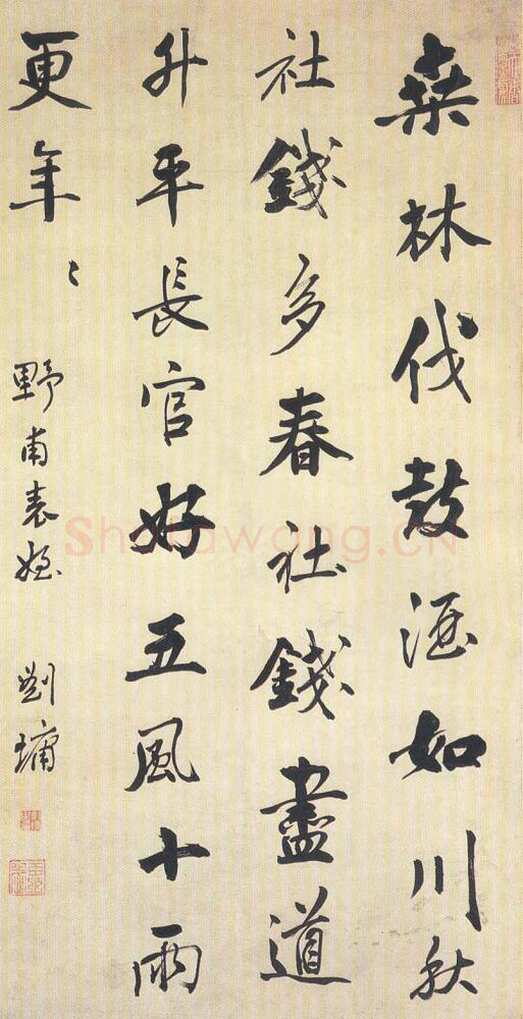 桒林伐鼓酒如川秋
社錢多春社錢盡道
升平長官好五風十雨
更年〻 野甫表姪 劉墉
Shufawang.CN